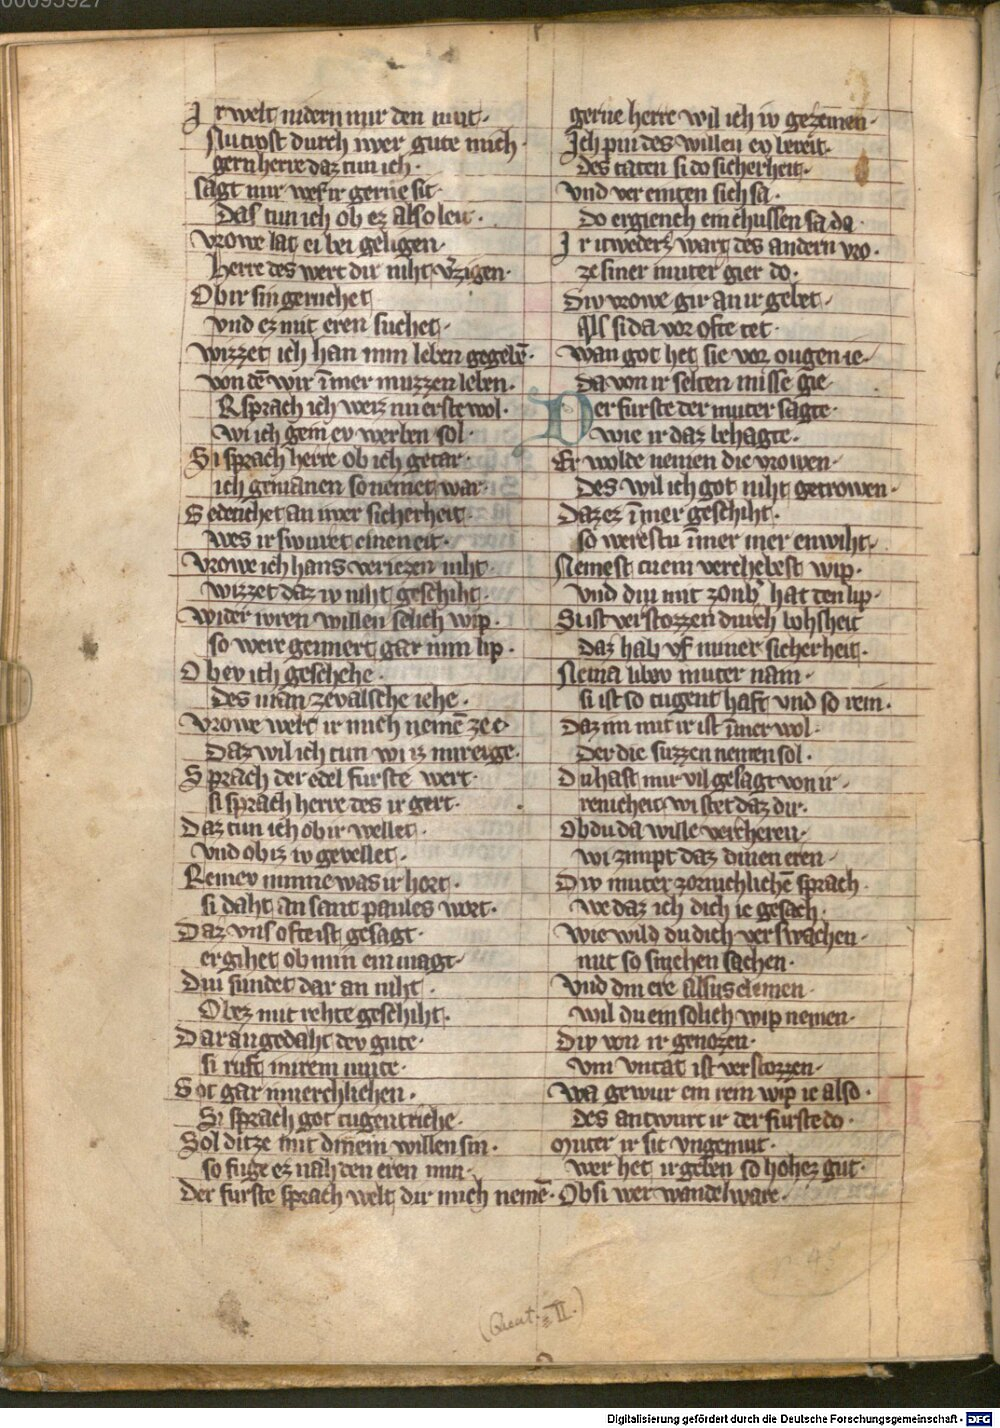 00095927
Ir welt nidern mir den mut·
Nu trost durch iwer gute mich·
gern herre daz tun ich·
sagt mir wes ir gerne sit·
Das tun ich ob ez also leit·
vrowe lat ei bei geligen·
herre des wert dir niht v̾zigen·
Ob ir sin geruchet
vnd ez mit eren suchet·
wizzet ich han min leben gegebē·
von dē wir īmer muzzen leben·
R sprach ich weiz nu erste wol·
wi ich gein ev werben sol·
Si sprach herre ob ich getar·
ich gemanen so nemet war·
Gedenchet an iwer sicherheit·
wes ir swuret einen eit·
vrowe ich hans veriezen niht·
wizzet daz iv niht geschiht·
wider iwren willen selich wip·
so were geunert gar min lip·
Ob ev ich geschehe·
des man ze valsche iehe·
vrowe welt ir mich nemē ze e
Daz wil ich tun wi iz mir erge·
Sprach der edel furste wert·
si sprach herre des ir gert·
Daz tun ich ob ir wellet·
vnd ob iz iv gevellet·
Reinev minne was ir hort·
si daht an sant paules wort·
Daz vns ofte ist gesagt·
er gihet ob min ein magt·
Diu sundet dar an niht·
Ob ez mit rehte geschiht·
Dar an gedaht dev gute·
si ruft in irem mute·
Got gar innerchlichen·
Si sprach got tugentriche·
Sol ditze mit dinem willen sin·
so fuge ez nah den eren min·
Der furste sprach welt dir mich nemē·
gerne herre wil ich iv gezemen·
Ich pin des willen ev bereit·
des taten si do sicherheit·
vnd ver einten sich sa·
Do ergiench ein chussen sa da·
Ir itweders wart des andern vro·
ze siner muter gier do·
Div vrowe gir an ir gebet·
Als si da vor ofte tet·
wan got het sie vor ougen ie·
da von ir selten misse gie·
Der furste der muter sagte·
wie ir daz behagte·
Er wolde nemen die vrowen·
des wil ich got niht getrowen·
Daz ez īmer geschiht·
so werestu īmer mer enwiht·
Nemest tu ein verchebest wip·
vnd diu mit zoub̾ hat ten lip·
Si ist verstozzen durch bohsheit
Daz hab vf miner sicherheit·
Neina libev muter nam·
si ist so tugent haft vnd so rein·
Daz im mit ir ist īmer wol·
Der die suzzen nemen sol·
Du hast mir vil gesagt von ir·
reinicheit wi stet daz dir·
Ob du da wille vercheren·
wi zimpt daz dinen eren·
Div muter zornichlichē sprach·
we daz ich dich ie gesach·
wie wild du dich verswachen·
mit so smehen sachen·
vnd din ere alsus chemen·
wil du ein solich wip nemen·
Div von ir genozen·
vm vntat ist verstozzen·
wa gewur ein rein wip ie also·
des antwurt ir der furste do·
Muter ir sit vngemut·
wer het ir geben so hohez gut·
Ob si wer wandelware·
(Quat. = II.)
Digitalisierung gefördert durch die Deutsche Forschungsgemeinschaft - DFG